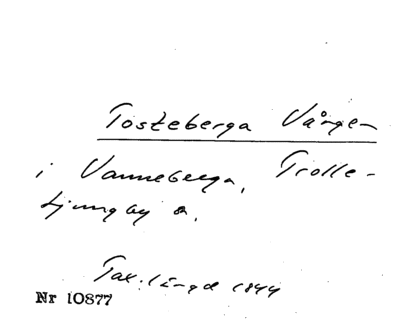 Tosteberga Vången
i Vanneberga, Trolle-
Ljungby s.
Tax.längd 1844
Nr 10877